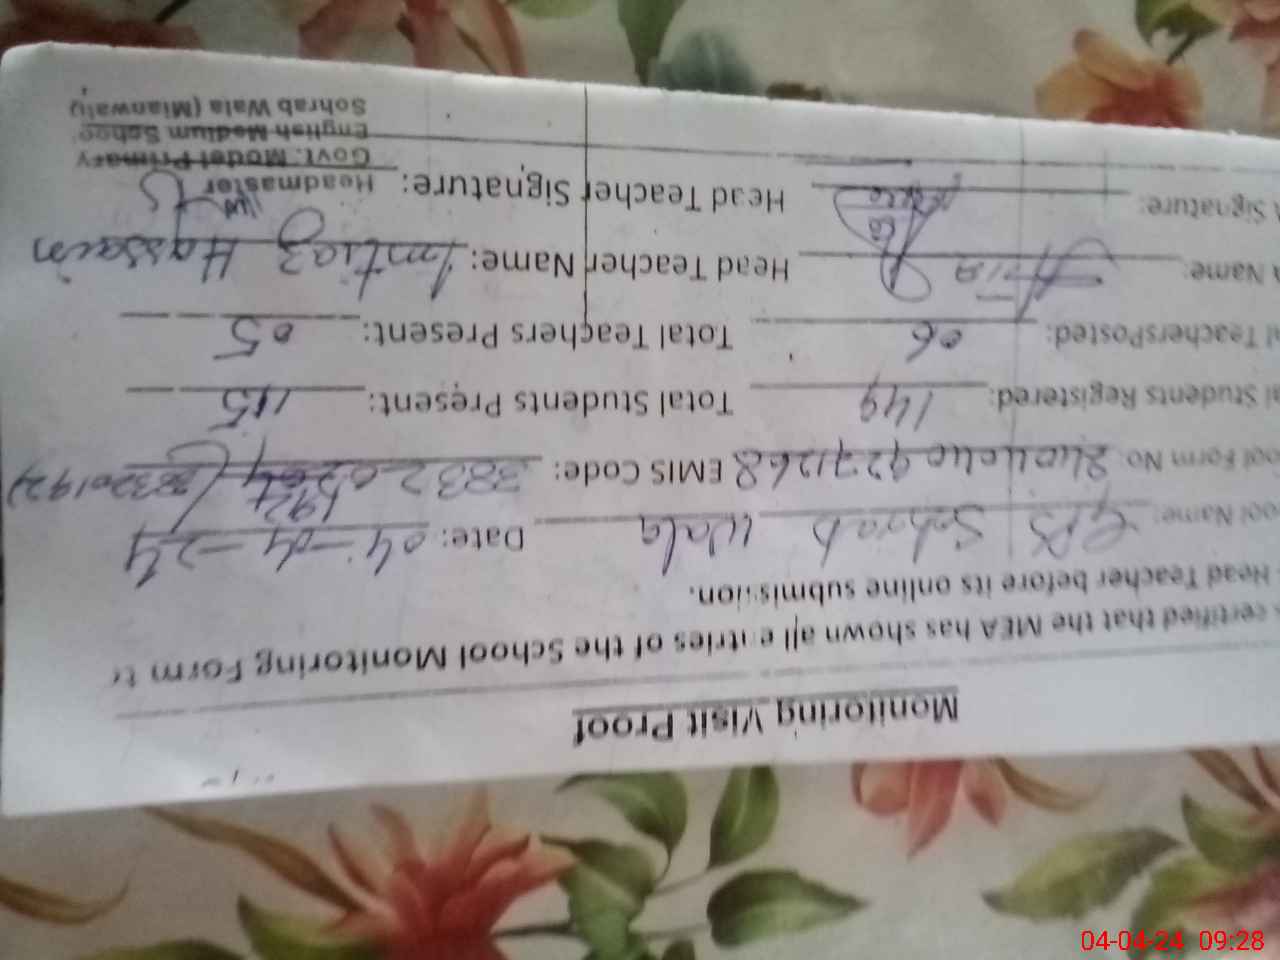 Monitoring Visit Proof
certified that the MEA has shown all entries of the School Monitoring Form to
Head Teacher before its online submission.
ool Name: GPS Sohrab Wala Date: 04-04-24
ool Form No: EMIS Code: (38320192)
al Students Registered: 149 Total Students Present: 115
al TeachersPosted: 06 Total Teachers Present: 05
Name: Head Teacher Name: Imtiaz Hassain
Signature: Head Teacher Signature:
Headmaster
Govt. Model Primary
English Medium School
Sohrab Wala (Mianwali)
04-04-24 09:28